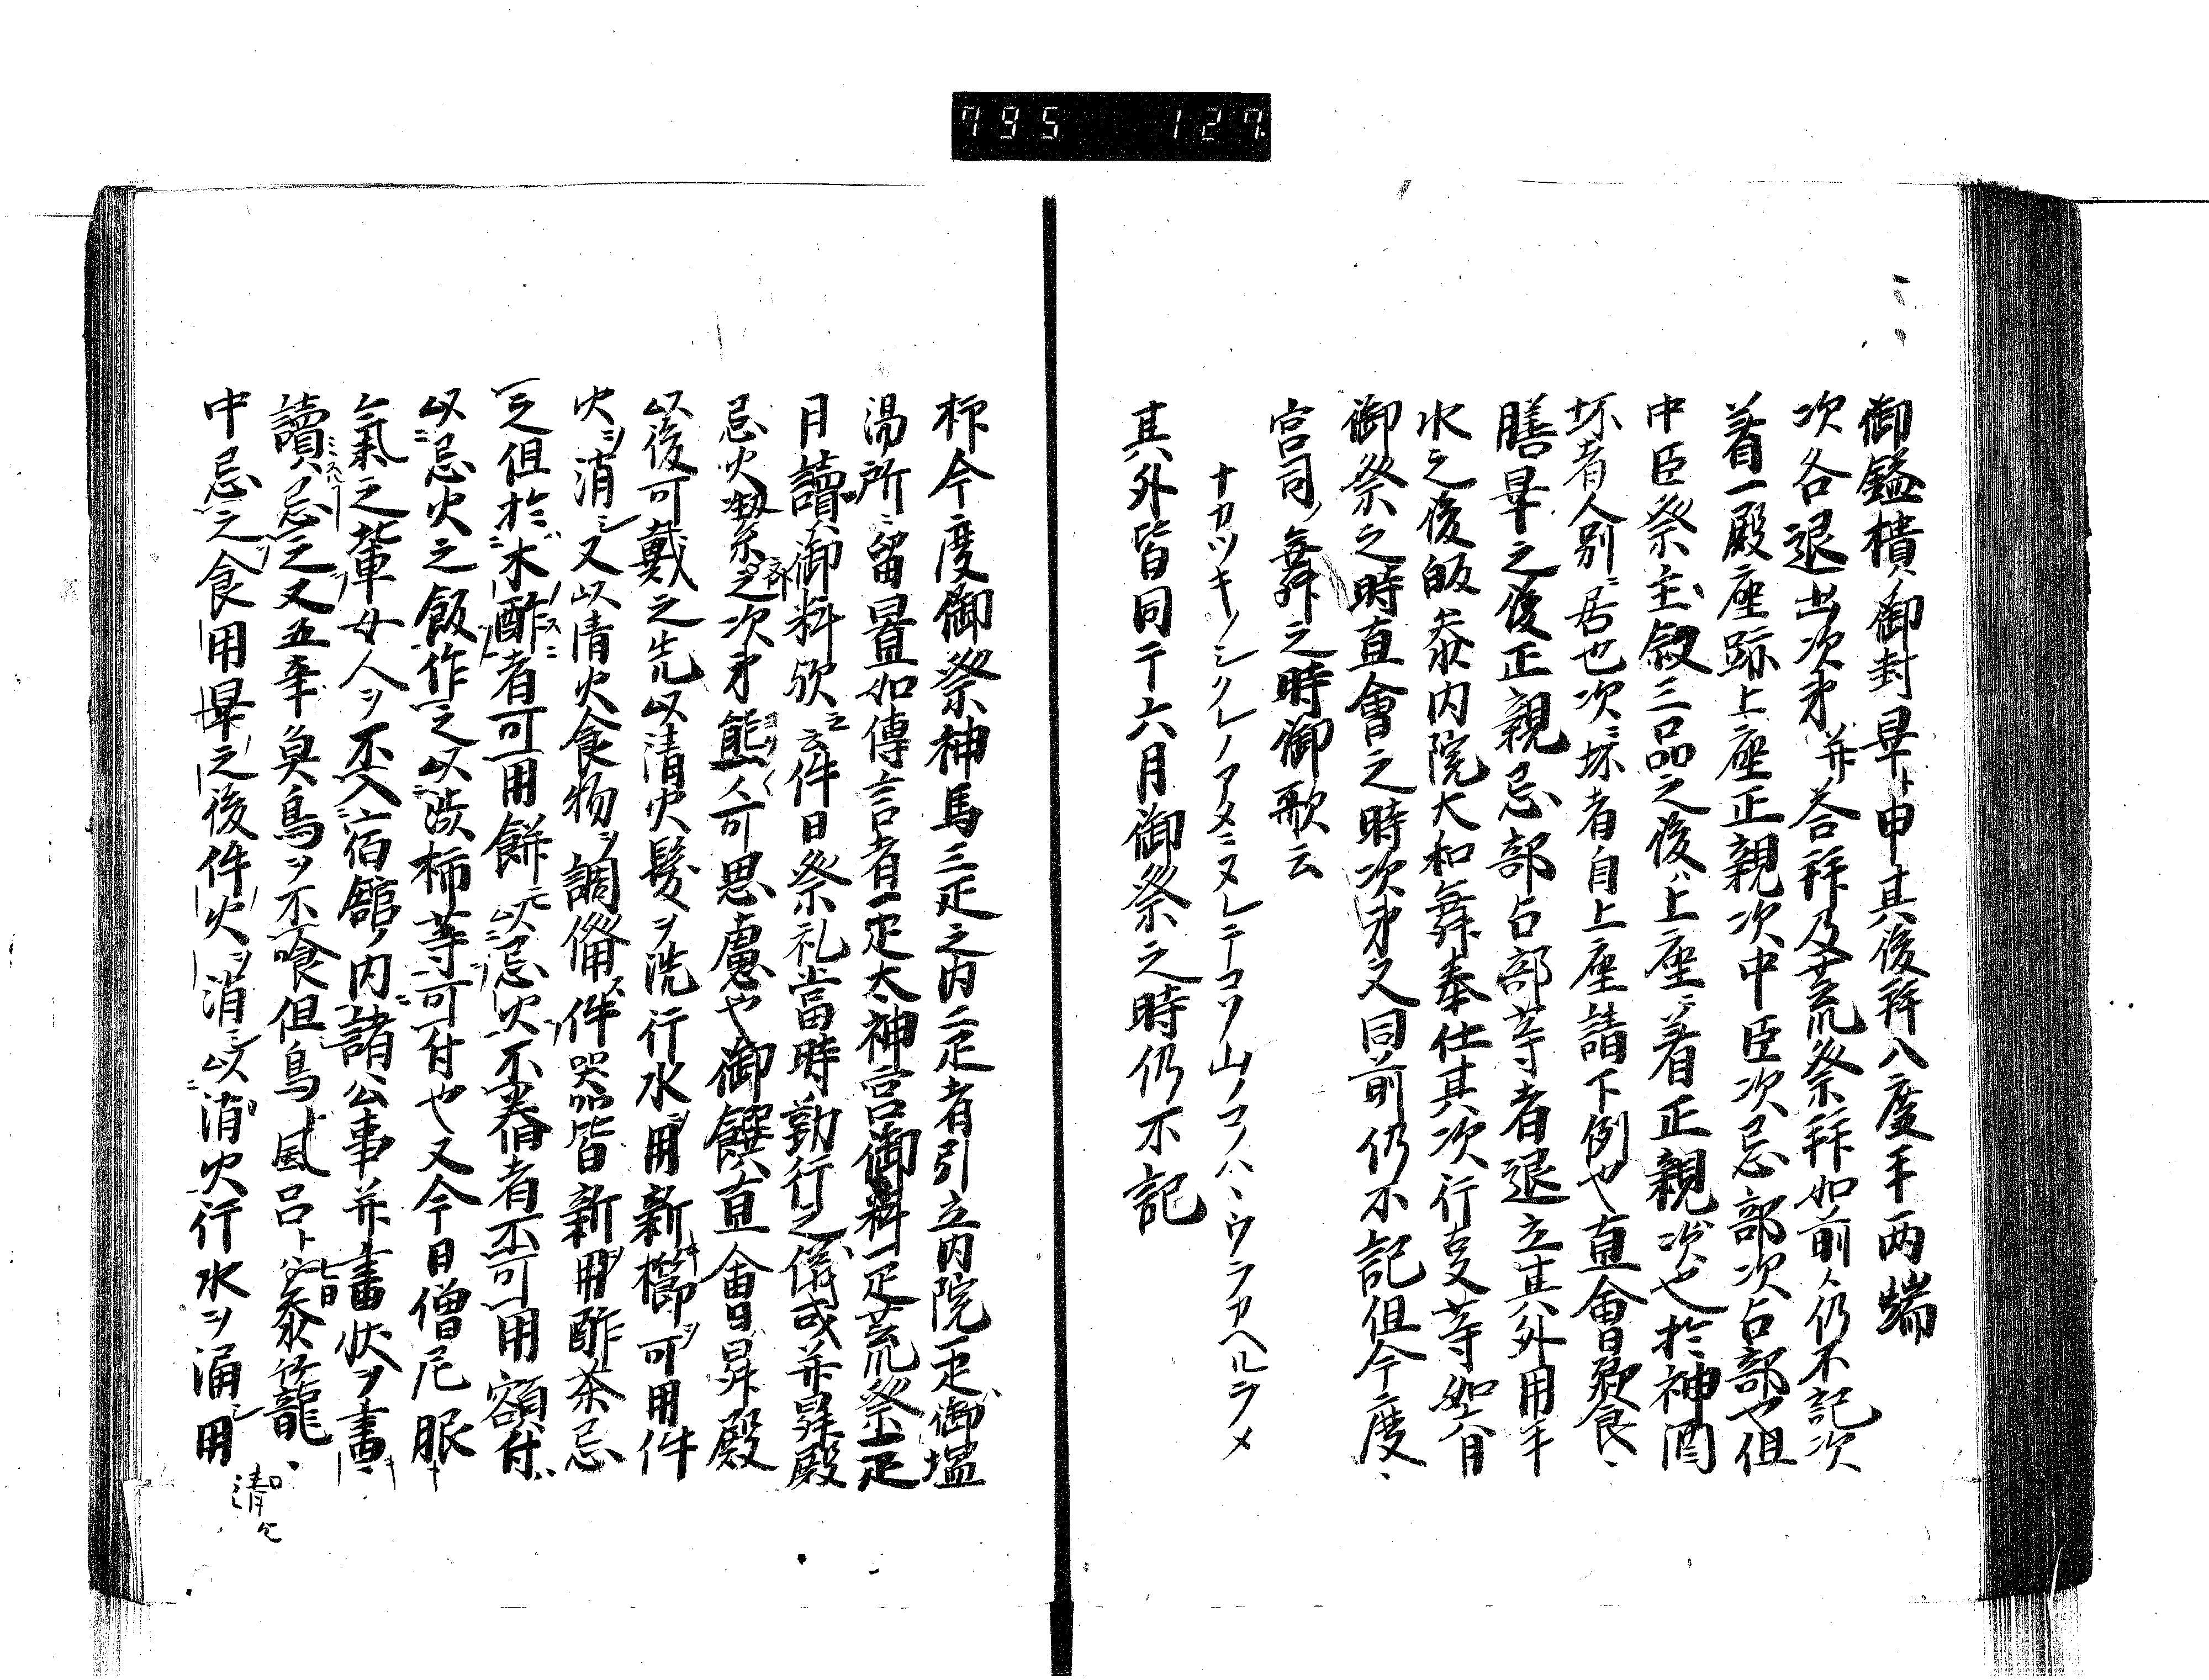 795 127
御鎰樻ノ御封畢ト申其後拜八度手両端
次各退出次第并荅拜及荒祭拜如前仍不記次
着一殿座跡上座正親次中臣次忌部次占部也但
中臣祭主叙三品之後ハ上座ニ着正親次也於神酒
坏者人別ニ居也次坏者自上座詣下例也直會飱食
膳畢之後正親忌部占部等者退立其外用手
水之後皈参内院大和舞奉仕其次行支等如六月
御祭之時直會之時次第又同前仍不記但今度
宮司舞之時御歌云
ナカツキノシクレノアメニヌレテコソ山ノコノハヽウラカヘルラメ
其外皆同于六月御祭之時仍不記
抑今度御祭神馬三疋之内二疋者引立内院一疋御塩
湯所ニ留畳如傳言者一疋太神宮御料一疋荒祭一疋
月讀御料欤云云件日祭礼當時勤行之儀或并昇殿
忌火之次第能々可思慮也御饌直會昇殿
以後可戴之先以清火髪ヲ洗行水用新櫛可用件
火ヲ消シ又以清火食物ヲ調備件器皆新用酢茶忌
之但於木酢者可用餅以忌火不備者不可用額付
以忌火之飯作之以渋柿等可付也又今日僧尼服
氣之輩女人ヲ不入宿舘ノ内諸公事并書状ヲ書
讀忌之又五辛魚鳥ヲ不喰但鳥風呂ト七日参篭
中忌之食用畢之後件火ヲ消シ以清火行水ヲ涌用
清